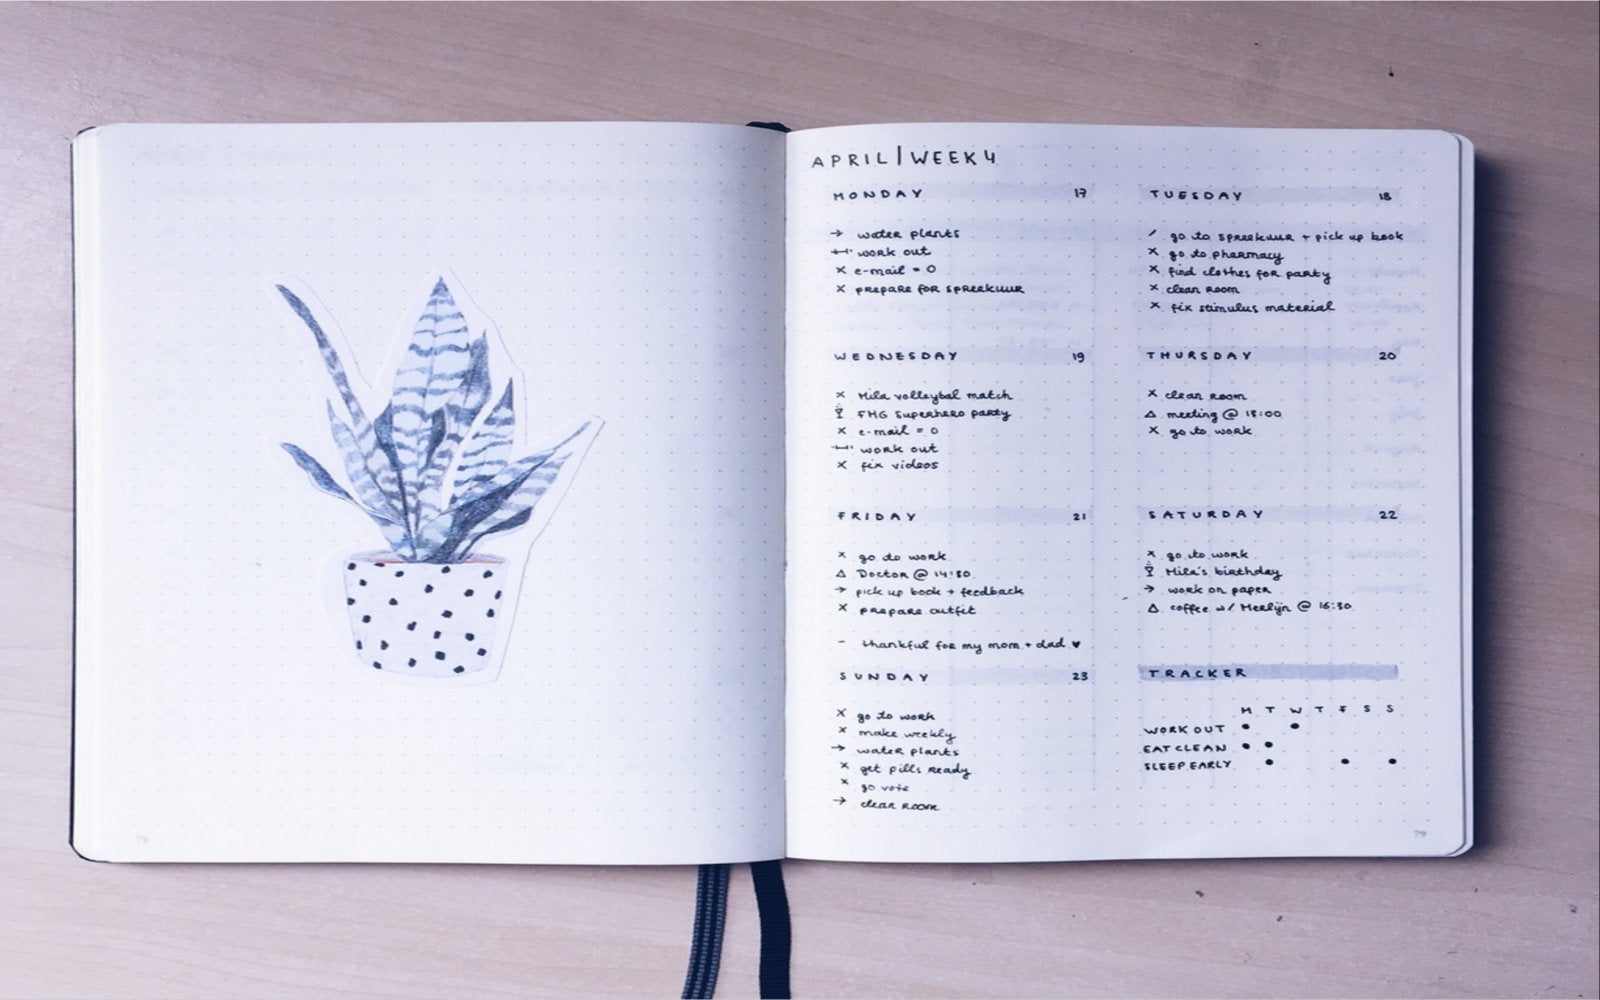 APRIL | WEEK 4
MONDAY 17
→ water plants
work out
x e-mail = 0
x prepare for spreekuur
TUESDAY 18
/ go to spreekuur + pick up book
x go to pharmacy
x find clothes for party
x clean room
x fix stimulus material
WEDNESDAY 19
x Mila volleybal match
FMG Superhero party
x e-mail = 0
work out
x fix videos
THURSDAY 20
x clean room
△ meeting @
x go to work
FRIDAY 21
x go to work
△ Doctor @ 14:30
→ pick up book + feedback
x prepare outfit
- thankful for my mom + dad ♥
SATURDAY 22
x go to work
Mila's birthday
→ work on paper
△ coffee w/ Merlijn @ 16:30
SUNDAY 23
x go to work
x make weekly
→ water plants
x get pills ready
x go vote
→ clean room
TRACKER
M T W T F S S
WORK OUT
EAT CLEAN
SLEEP EARLY
79